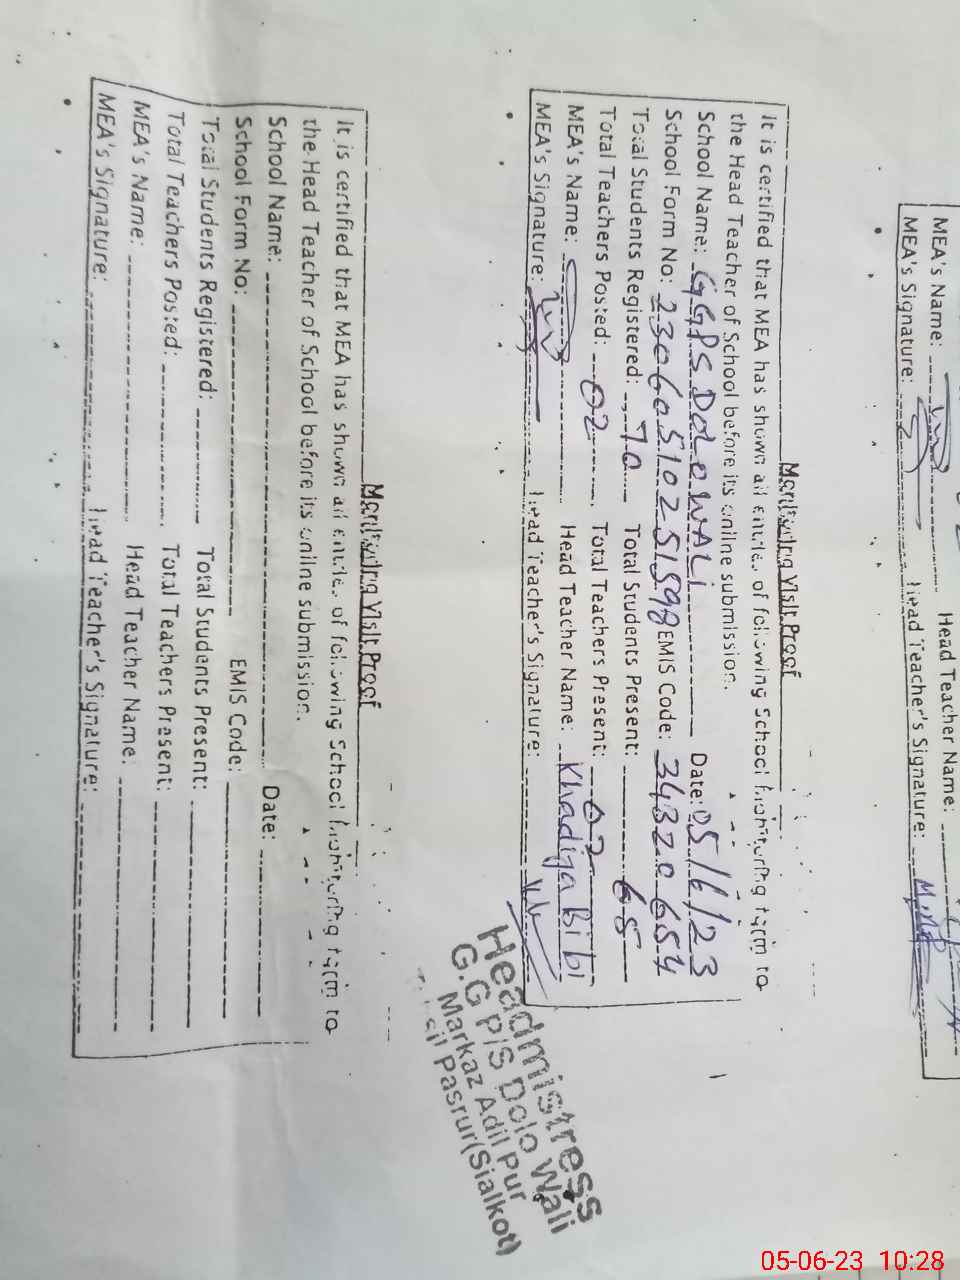 MEA's Name:
Head Teacher Name:
MEA's Signature:
Head Teacher's Signature:
Monitoring Visit Proof
It is certified that MEA has shown all entries of following School Monitoring form to
the Head Teacher of School before its online submission.
School Name: GGPS Dolowali Date: 05/6/23
School Form No: 2306051025159 EMIS Code: 34320654
Total Students Registered: 70 Total Students Present: 65
Total Teachers Posted: 02 Total Teachers Present: 02
MEA's Name: Head Teacher Name: Khadija Bibi
MEA's Signature: Head Teacher's Signature:
Headmistress
G.G P/S Dolo Wali
Markaz Adil Pur
Pasrur(Sialkot)
Monitoring Visit Proof
It is certified that MEA has shown all entries of following School Monitoring form to
the Head Teacher of School before its online submission.
School Name: Date:
School Form No: EMIS Code:
Total Students Registered: Total Students Present:
Total Teachers Posted: Total Teachers Present:
MEA's Name: Head Teacher Name:
MEA's Signature: Head Teacher's Signature:
05-06-23 10:28